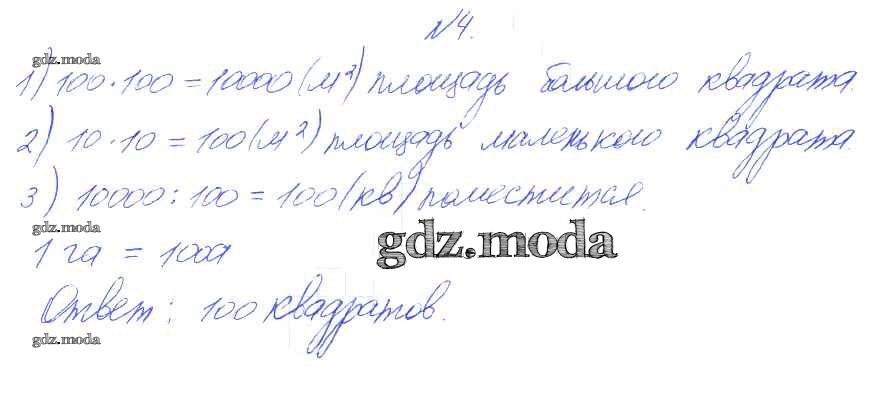 №4.
gdz.moda
1) 100·100 = 10000 (м²) площадь большого квадрата.
2) 10·10 = 100 (м²) площадь маленького квадрата.
3) 10000 : 100 = 100 (кв) поместится.
gdz.moda
1 га = 100а
gdz.moda
Ответ: 100 квадратов.
gdz.moda